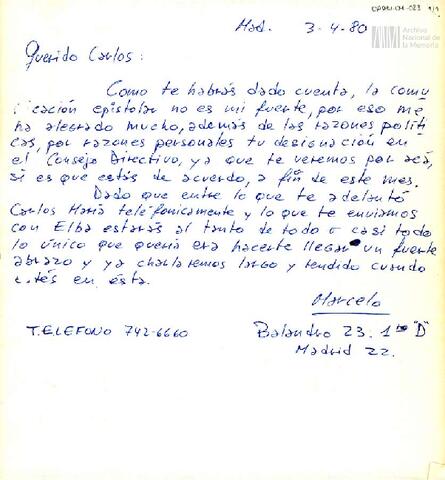 Archivo
Nacional de
la Memoria
Mad. 3-4-80
Querido Carlos:
Como te habrás dado cuenta, la comu
icación epistolar no es mi fuerte, por eso me
ha alegrado mucho, además de las razones políti
cas, por razones personales tu designación en
el Consejo Directivo, ya que te veremos por acá,
si es que estás de acuerdo, a fin de este mes.
Dado que entre lo que te adelantó
Carlos María telefónicamente y lo que te enviamos
con Elba estarás al tanto de todo o casi todo
lo único que quería era hacerte llegar un fuerte
abrazo y ya charlaremos largo y tendido cuando
estés en ésta.
Marcelo
TELEFONO 742-6660
Balandro 23. 1º "D"
Madrid 22.